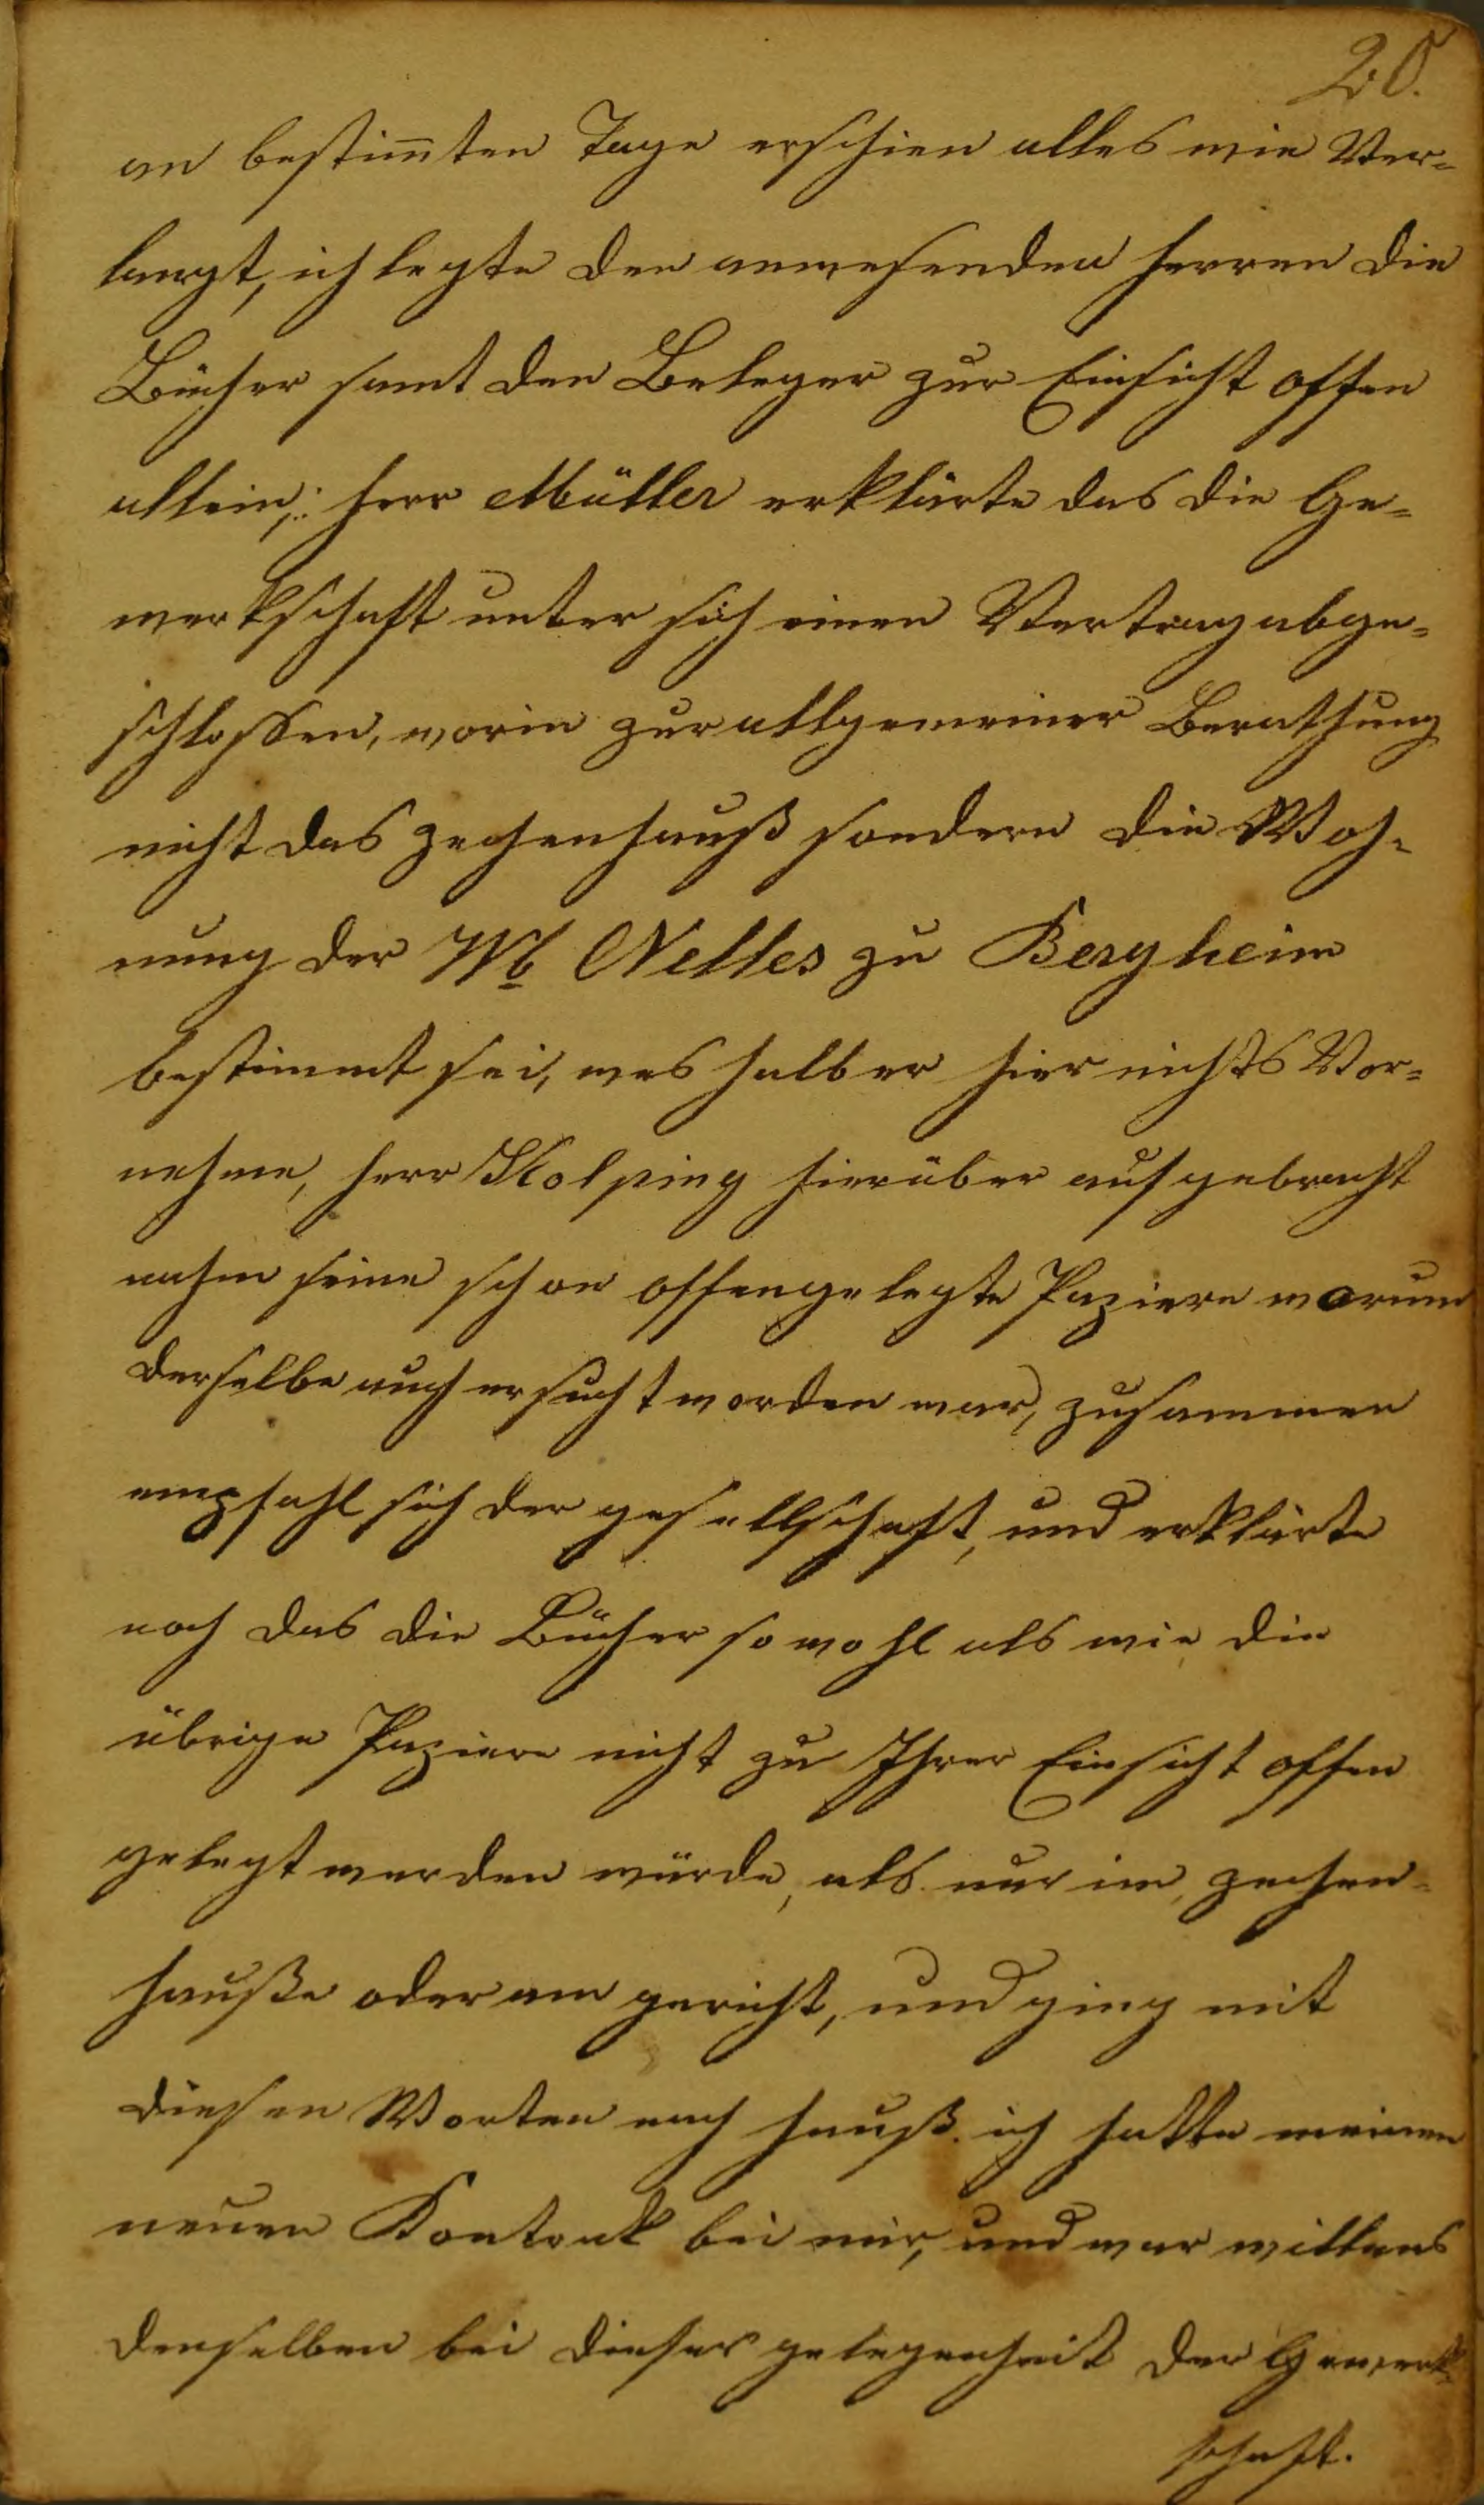 20.
an bestim̄ten Tage erschien alles wie Ver=
langt, ich legte den anwesenden Herren die
Bücher samt den Beleger zur Einsicht offen
allein; Herr Müller erklärte das die Ge=
werkschaft unter sich einen Vertrag abge=
schlossen, worin zur allgemeiner Berathung
nicht das zechenhauß sondern die Woh=
nung der Wb Nelles zu Bergheim
bestimmt sei, wes halb er hier nichts Vor=
nehme, Herr Kolping hierüber aufgebracht
nahm seine schon offengelegte Papiere worum
derselbe auch ersucht worden war, zusammen
empfahl sich der gesellschaft, und erklärte
noch das die Bücher so wohl als wie die
übrige Papiere nicht zu Ihrer Einsicht offen
gelegt werden würde, als nur im, zechen=
hauße oder am gericht, und ging mit
diesen Worten nach hauß. ich hatte meinen
neuen Kontrak bei mir, und war willens
denselben bei dieser gelegenheit der Gewerk=
schaft.